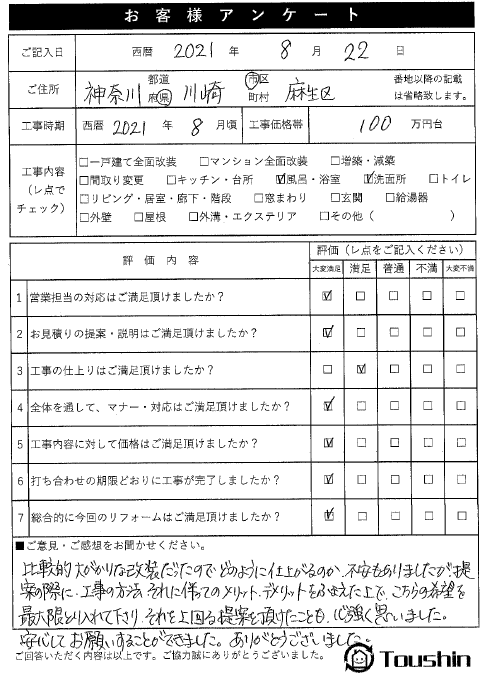 お客様アンケート
ご記入日 西暦 2021 年 8 月 22 日
ご住所 神奈川 都道府県 川崎 市区町村 麻生区 番地以降の記載は省略致します。
工事時期 西暦 2021 年 8 月頃 工事価格帯 100 万円台
工事内容（レ点でチェック）
□一戸建て全面改装 □マンション全面改装 □増築・減築
□間取り変更 □キッチン・台所 ☑風呂・浴室 ☑洗面所 □トイレ
□リビング・居室・廊下・階段 □窓まわり □玄関 □給湯器
□外壁 □屋根 □外溝・エクステリア □その他（ ）
評価内容 評価（レ点をご記入ください）
大変満足 満足 普通 不満 大変不満
1 営業担当の対応はご満足頂けましたか？ ☑ □ □ □ □
2 お見積りの提案・説明はご満足頂けましたか？ ☑ □ □ □ □
3 工事の仕上りはご満足頂けましたか？ □ ☑ □ □ □
4 全体を通して、マナー・対応はご満足頂けましたか？ ☑ □ □ □ □
5 工事内容に対して価格はご満足頂けましたか？ ☑ □ □ □ □
6 打ち合わせの期限どおりに工事が完了しましたか？ ☑ □ □ □ □
7 総合的に今回のリフォームはご満足頂けましたか？ ☑ □ □ □ □
■ご意見・ご感想をお聞かせください。
比較的大がかりな改装だったのでどのように仕上がるのか、不安もありましたが、提
案の際に、工事の方法、それに伴ってのメリット、デメリットをふまえた上で、こちらの希望を
最大限とり入れて下さり、それを上回る提案を頂けたことも、心強く思いました。
安心してお願いすることができました。ありがとうございました。
ご回答いただく内容は以上です。ご協力誠にありがとうございました。
Toushin